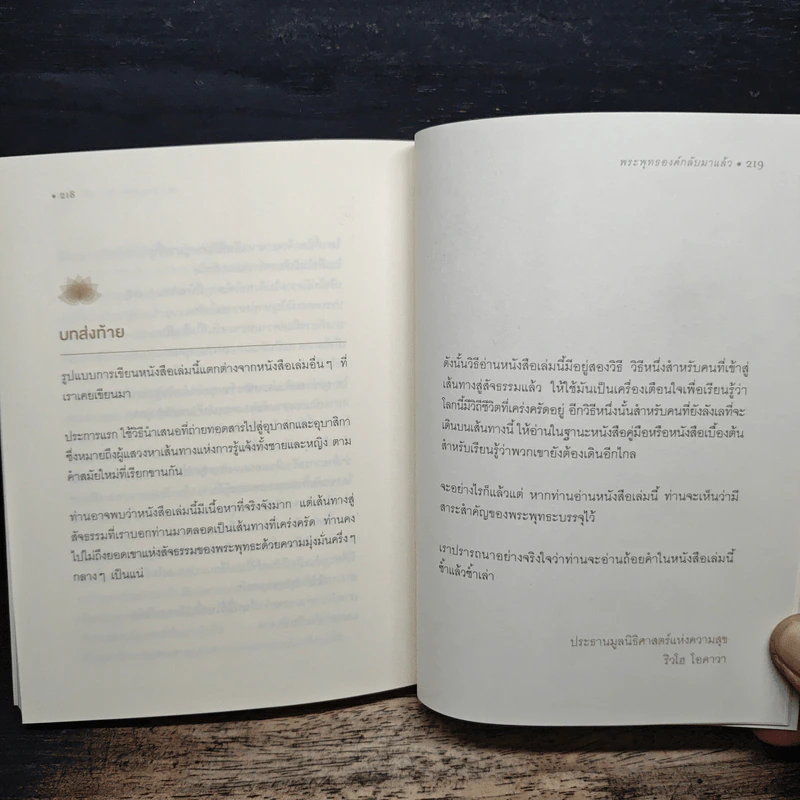 • 218
บทส่งท้าย
รูปแบบการเขียนหนังสือเล่มนี้แตกต่างจากหนังสือเล่มอื่นๆ ที่
เราเคยเขียนมา
ประการแรก ใช้วิธีนำเสนอที่ถ่ายทอดสารไปสู่อุบาสกและอุบาสิกา
ซึ่งหมายถึงผู้แสวงหาเส้นทางแห่งการรู้แจ้งทั้งชายและหญิง ตาม
คำสมัยใหม่ที่เรียกขานกัน
ท่านอาจพบว่าหนังสือเล่มนี้มีเนื้อหาที่จริงจังมาก แต่เส้นทางสู่
สัจธรรมที่เราบอกท่านมาตลอดเป็นเส้นทางที่เคร่งครัด ท่านคง
ไปไม่ถึงยอดเขาแห่งสัจธรรมของพระพุทธะด้วยความมุ่งมั่นครึ่งๆ
กลางๆ เป็นแน่
พระพุทธองค์กลับมาแล้ว • 219
ดังนั้นวิธีอ่านหนังสือเล่มนี้มีอยู่สองวิธี วิธีหนึ่งสำหรับคนที่เข้าสู่
เส้นทางสู่สัจธรรมแล้ว ให้ใช้มันเป็นเครื่องเตือนใจเพื่อเรียนรู้ว่า
โลกนี้มีวิถีชีวิตที่เคร่งครัดอยู่ อีกวิธีหนึ่งนั้นสำหรับคนที่ยังลังเลที่จะ
เดินบนเส้นทางนี้ ให้อ่านในฐานะหนังสือคู่มือหรือหนังสือเบื้องต้น
สำหรับเรียนรู้ว่าพวกเขายังต้องเดินอีกไกล
จะอย่างไรก็แล้วแต่ หากท่านอ่านหนังสือเล่มนี้ ท่านจะเห็นว่ามี
สาระสำคัญของพระพุทธะบรรจุไว้
เราปรารถนาอย่างจริงใจว่าท่านจะอ่านถ้อยคำในหนังสือเล่มนี้
ซ้ำแล้วซ้ำเล่า
ประธานมูลนิธิศาสตร์แห่งความสุข
ริวโฮ โอคาวา